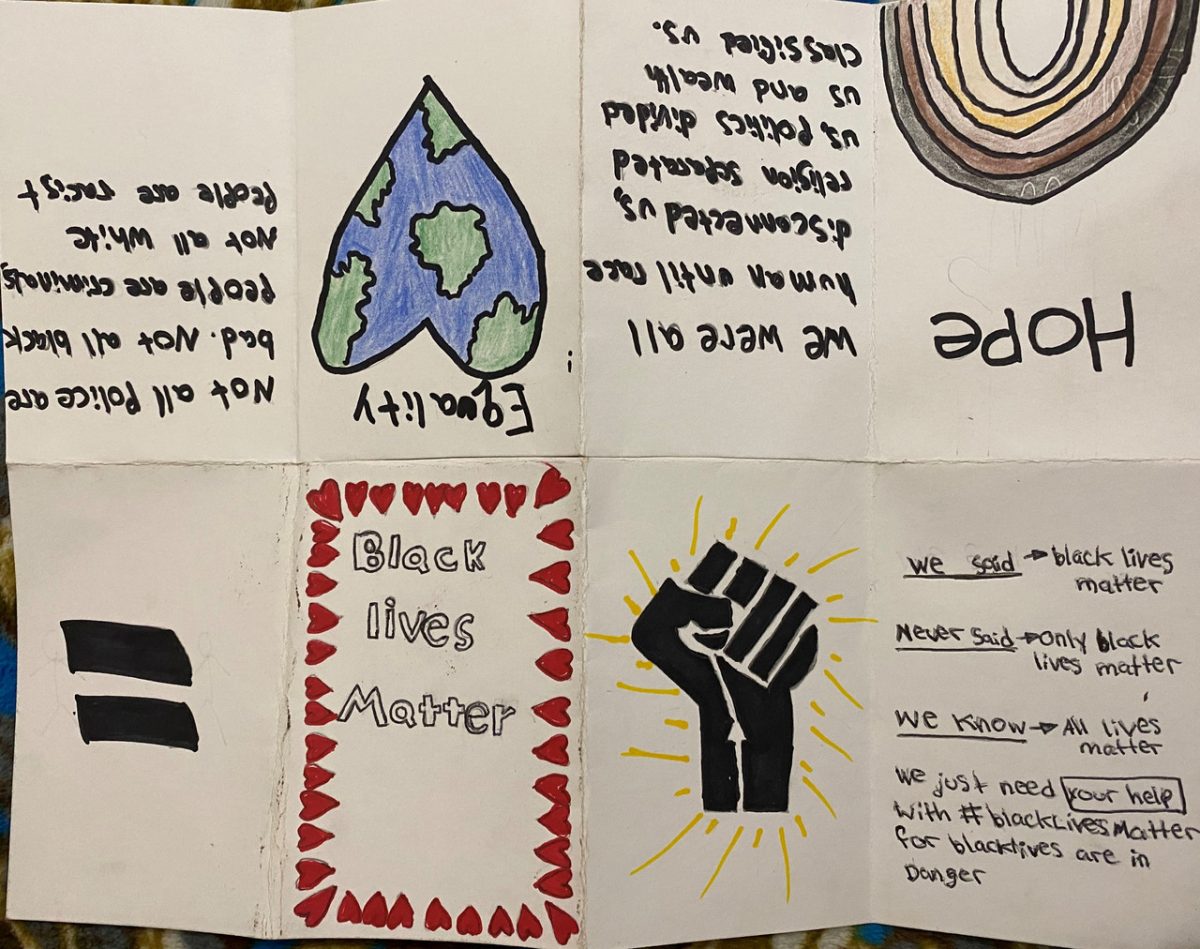 Not all Police are
bad. Not all black
People are criminals,
Not all white
People are racist
Equality
We were all
human until race
disconnected us,
religion seperated
us, Politics divided
us and wealth
classified us.
Hope
Black
lives
Matter
We said → black lives
matter
Never said → Only black
lives matter
We Know → All lives
matter
We just need your help
With #blackLivesMatter
for blacklives are in
Danger